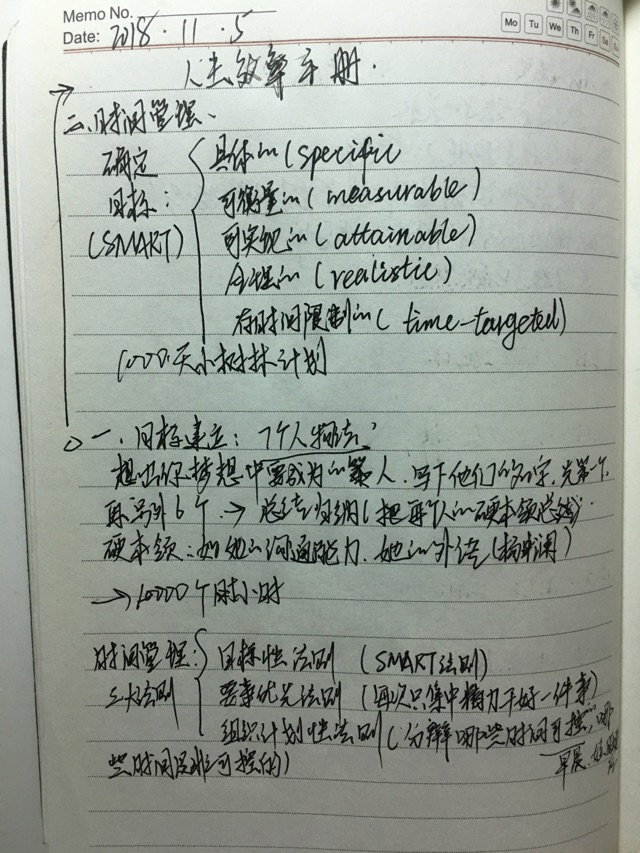 Memo No.
Mo Tu We Th Fr Sa
Date: 2018.11.5
人生效率手册.
二、时间管理、
确定目标:(SMART)
具体的(specific
可衡量的(measurable)
可实现的(attainable)
合理的(realistic)
有时间限制的(time-targeted)
1000天小树林计划
一、目标建立:7个人物法:
想出你梦想中要成为的人,写下他们的名字,先第一个,
再写另6个→总结归纳(把每个人的硬本领总结)
硬本领:如他的沟通能力,她的外语
→10000个小时
时间管理:三大法则
目标性法则(SMART法则)
要事优先法则(每次只集中精力干好一件事)
组织计划性法则(分辨哪些时间可控,哪
些时间是非可控的)
早晨,